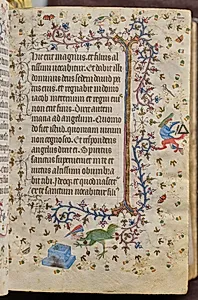 hic erit magnus. et filius al
tissimi vocabitur. Et dabit illi
dominus deus sedem david pa
tris eius. et regnabit in domo
iacob in eternum et regni eius
non erit finis. Dixit autem
maria ad angelum. Quomo
do fiet istud. quoniam virum
non cognosco. Et respondens
angelus dixit ei. Spiritus
sanctus superveniet in te et
virtus altissimi obumbra
bit tibi. Ideoque et quod nascet
ex te sanctum vocabitur